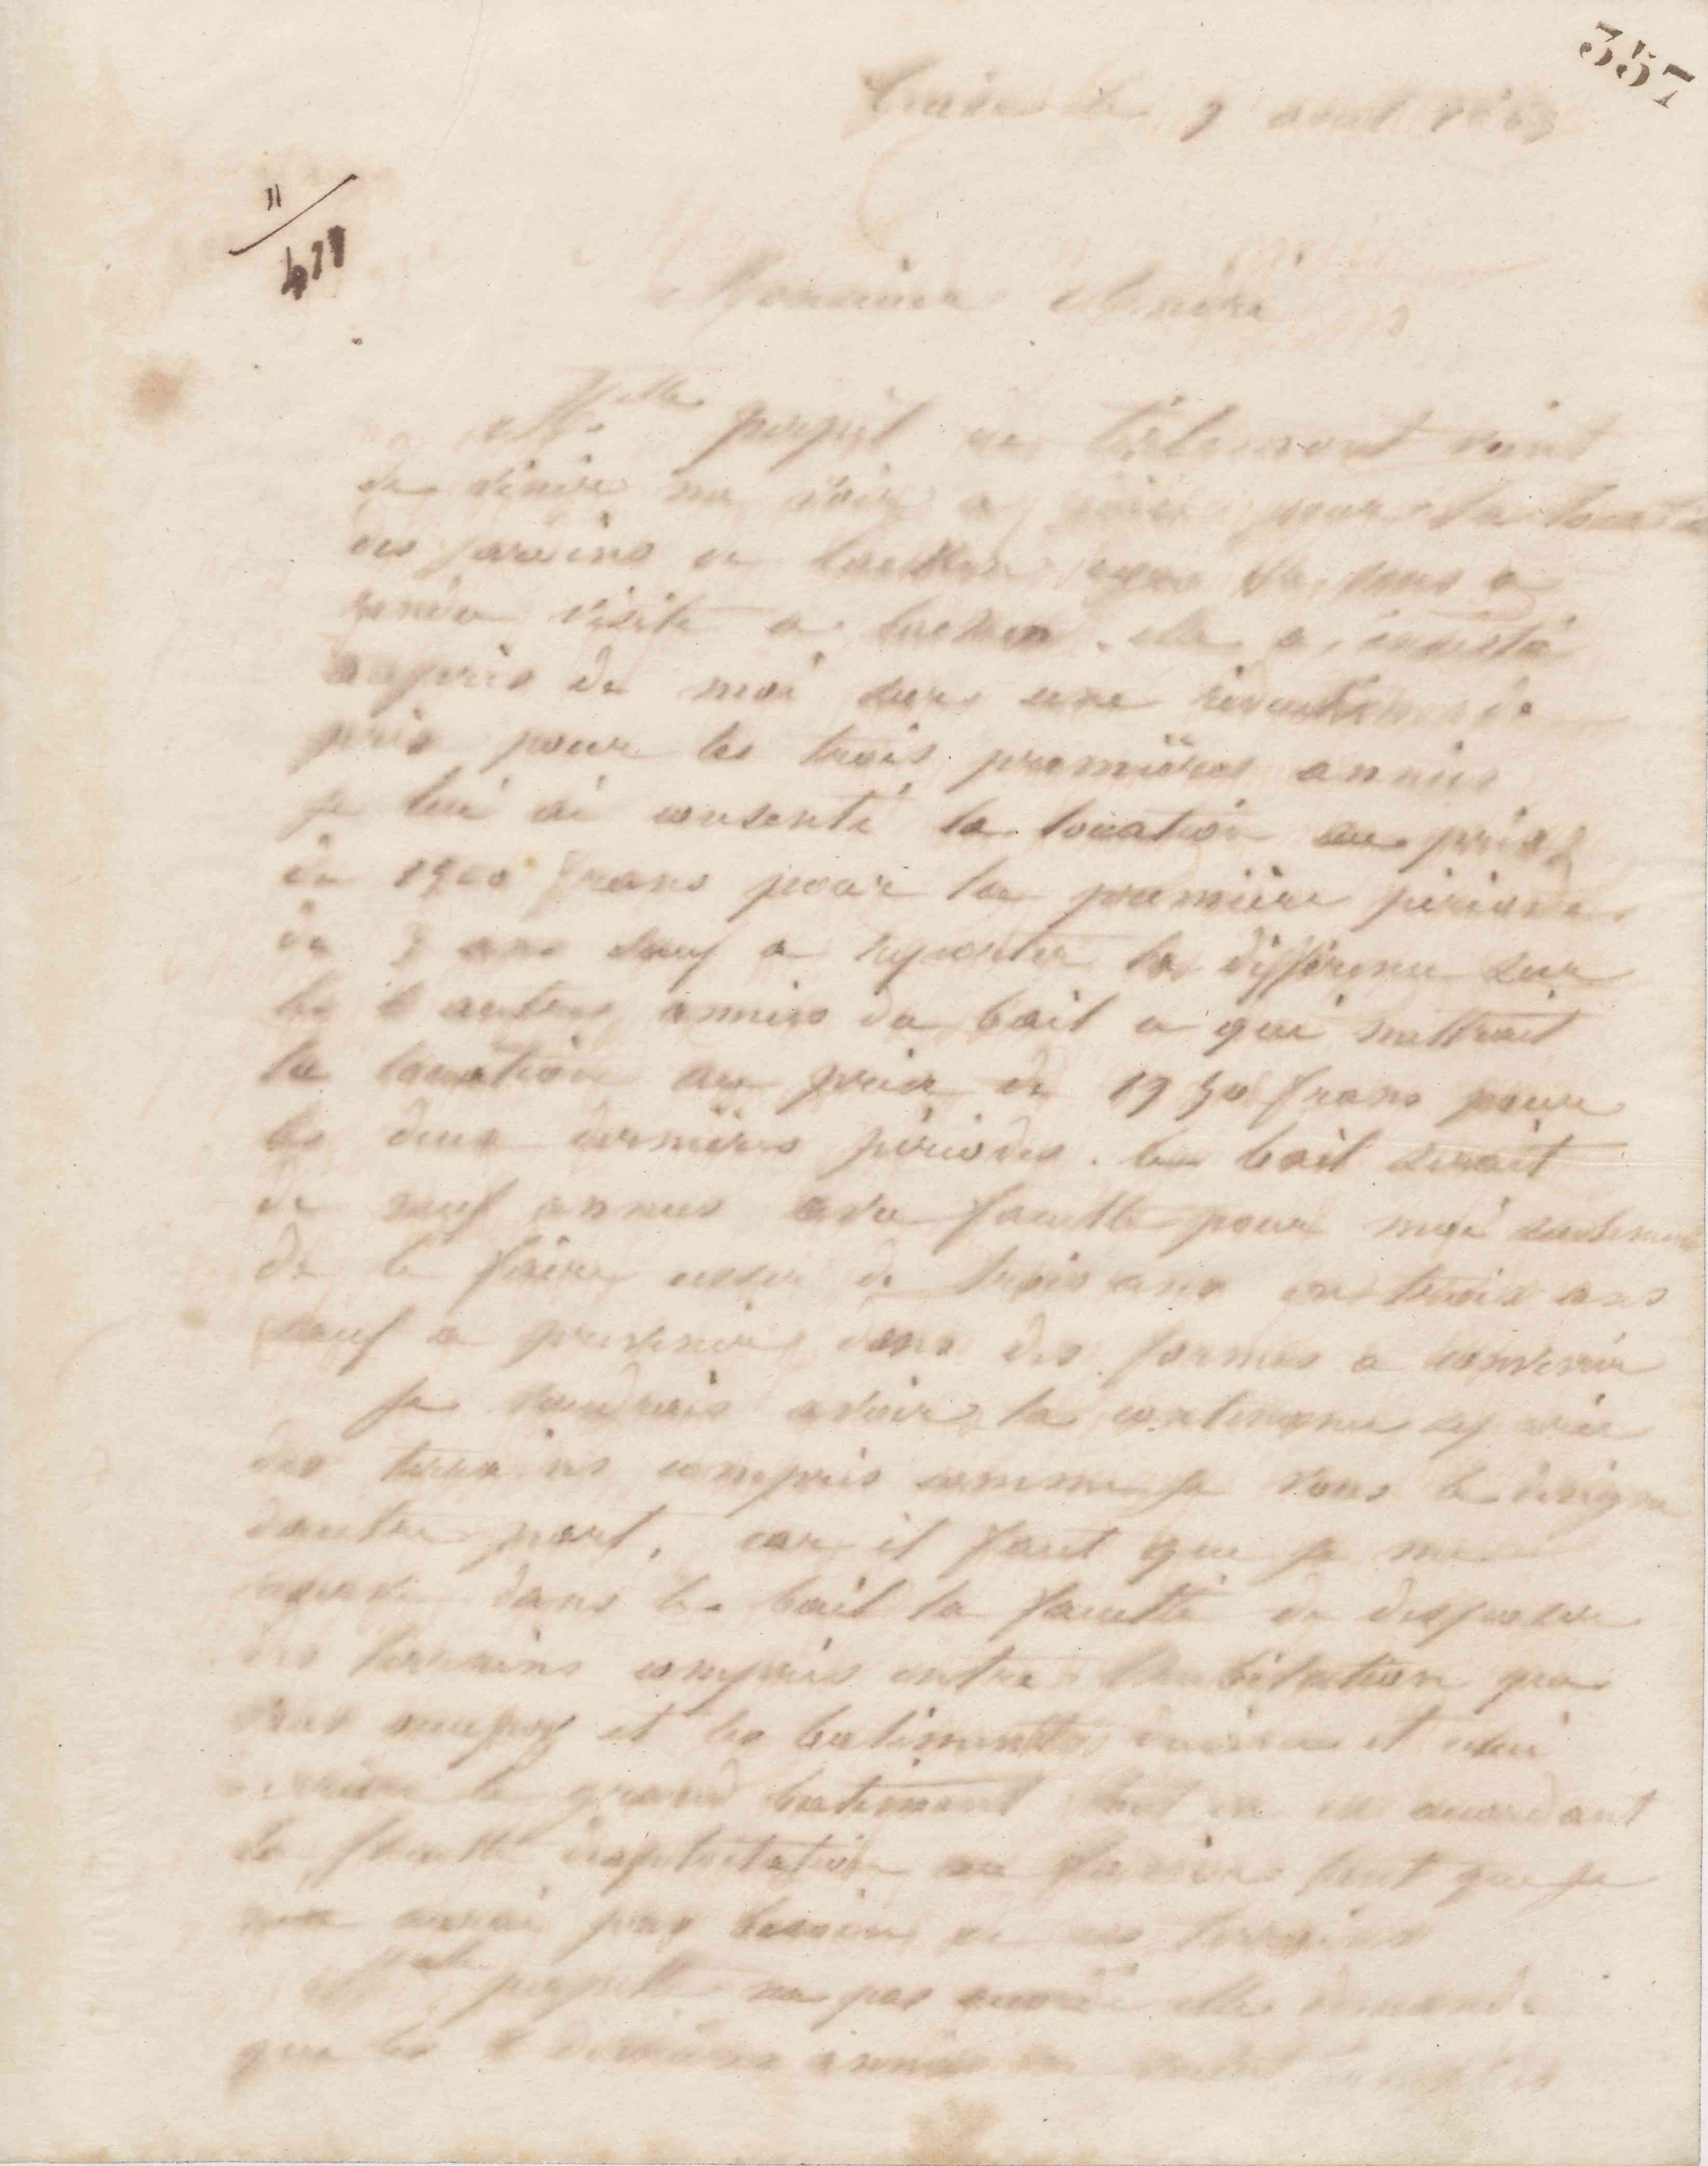 357
Guise le 9 avril 1863
11/471
Monsieur
Melle pupil de Tirlemont vient
de venir me voir a pour la
des jardins de Laeken que vous a
rendu visite a Laeken. elle a insisté
auprès de moi sur une réduction de
prix pour les trois premières années
je lui ai consenti la location au prix
de 1900 frans pour la première période
de 3 ans sauf a reporter la différence sur
les 6 autres années du bail ce qui mettrait
la location au prix de 1950 frans pour
les deux dernières périodes. le bail serait
de neuf années avec faculté pour moi seulement
de le faire cesser de trois ans en trois ans
sauf a prévenir dans des formes a convenir
Je voudrais avoir la contenance séparée
des terrains compris comme je vous le désigne
dautre part, car il faut que je me
réserve dans le bail la faculté de disposer
des terrains compris entre lhabitation que
vous occupez et les batiments et celui
derrière le grand batiment tout en en accordant
la faculté dexploitation au tant que je
naurai pas besoin de ces terrains
Melle na pas accordé elle demande
que les 6 dernières années